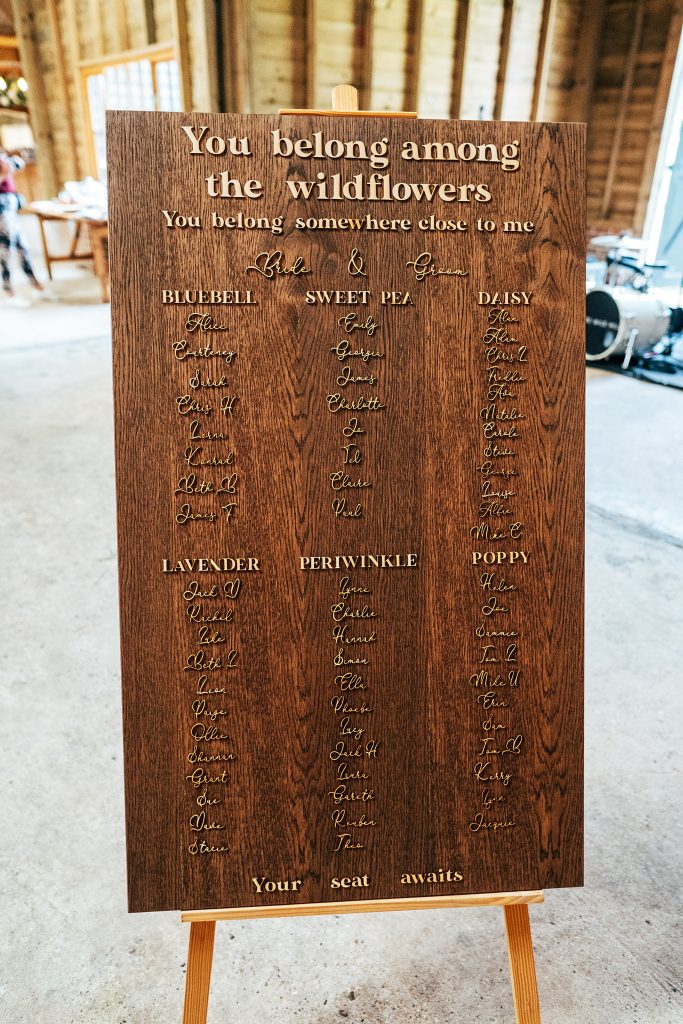 You belong among
the wildflowers
You belong somewhere close to me
Bride & Groom
BLUEBELL
Alice
Courteney
Sarah
Chris H
Lorna
Konrad
Beth B
James T
SWEET PEA
Emily
Georgie
James
Charlotte
Jo
Tel
Claire
Paul
DAISY
Alan
Adam
Chris L
Freddie
Ava
Natalie
Carole
Steve
George
Louise
Alfie
Mike C
LAVENDER
Jack D
Rachel
Luke
Beth L
Leon
Paige
Ollie
Shannan
Grant
Sue
Dave
Stacie
PERIWINKLE
Lynne
Charlie
Hannah
Simon
Ella
Phoebe
Lucy
Jack H
Laura
Gareth
Reuben
Theo
POPPY
Helen
Joe
Sammie
Tom L
Mike U
Erin
Sam
Tom B
Kerry
Lynn
Jacquie
Your seat awaits